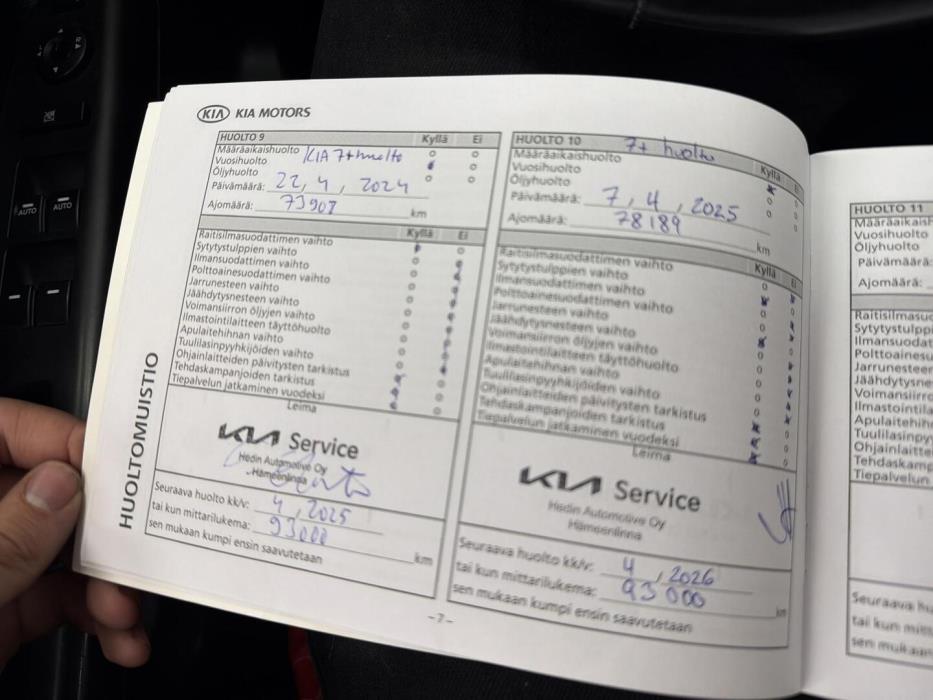 KIA KIA MOTORS
HUOLTO 9 Kyllä Ei
Määräaikaishuolto KIA 7+ huolto
Vuosihuolto
Öljyhuolto
Päivämäärä: 22, 4, 2024
Ajomäärä: 73907 km
Kyllä Ei
Raitisilmasuodattimen vaihto
Sytytystulppien vaihto
Ilmansuodattimen vaihto
Polttoainesuodattimen vaihto
Jarrunesteen vaihto
Jäähdytysnesteen vaihto
Voimansiirron öljyjen vaihto
Ilmastointilaitteen täyttöhuolto
Apulaitehihnan vaihto
Tuulilasinpyyhkijöiden vaihto
Ohjainlaitteiden päivitysten tarkistus
Tehdaskampanjoiden tarkistus
Tiepalvelun jatkaminen vuodeksi
Leima
KIA Service
Hedin Automotive Oy
Hämeenlinna
Seuraava huolto kk/v: 4, 2025
tai kun mittarilukema: 93000 km
sen mukaan kumpi ensin saavutetaan
HUOLTO 10 7+ huolto
Määräaikaishuolto Kyllä Ei
Vuosihuolto
Öljyhuolto
Päivämäärä: 7, 4, 2025
Ajomäärä: 78189 km
Kyllä Ei
Raitisilmasuodattimen vaihto
Sytytystulppien vaihto
Ilmansuodattimen vaihto
Polttoainesuodattimen vaihto
Jarrunesteen vaihto
Jäähdytysnesteen vaihto
Voimansiirron öljyjen vaihto
Ilmastointilaitteen täyttöhuolto
Apulaitehihnan vaihto
Tuulilasinpyyhkijöiden vaihto
Ohjainlaitteiden päivitysten tarkistus
Tehdaskampanjoiden tarkistus
Tiepalvelun jatkaminen vuodeksi
Leima
KIA Service
Hedin Automotive Oy
Hämeenlinna
Seuraava huolto kk/v: 4, 2026
tai kun mittarilukema: 93000 km
sen mukaan kumpi ensin saavutetaan
HUOLTOMUISTIO
- 7 -
HUOLTO 11
Määräaikaish
Vuosihuolto
Öljyhuolto
Päivämäärä:
Ajomäärä:
Raitisilmasu
Sytytystulpp
Ilmansuodat
Polttoainesu
Jarrunesteen
Jäähdytysne
Voimansiirro
Ilmastointila
Apulaitehihn
Tuulilasinpy
Ohjainlaitte
Tehdaskamp
Tiepalvelun
Seuraava hu
tai kun mitt
sen mukaan
AUTO
AUTO